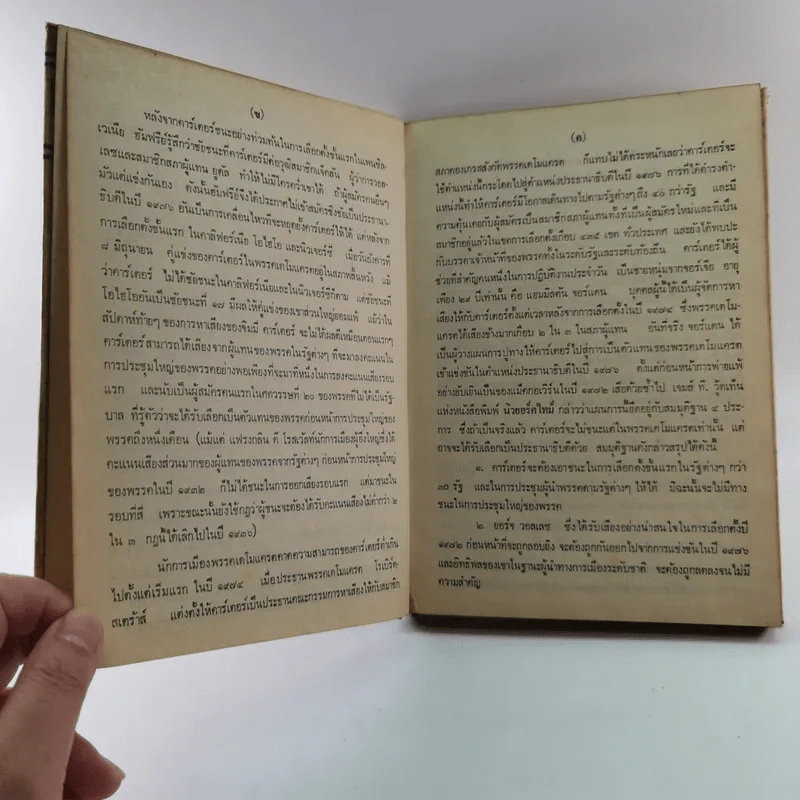 (ข)
หลังจากคาร์เตอร์ชนะอย่างท่วมท้นในการเลือกตั้งขั้นแรกในเพนซิล-
เวเนีย ฮัมฟรีย์รู้สึกว่าชัยชนะที่คาร์เตอร์มีต่อวุฒิสมาชิกแจ๊คสัน ผู้ว่าการวอล-
เลซและสมาชิกสภาผู้แทน ยูดัล ทำให้ไม่มีใครคว่ำเขาได้ ถ้าผู้สมัครคนอื่นๆ
มัวแต่แข่งกันเอง ดังนั้นฮัมฟรีย์จึงได้ประกาศไม่เข้าสมัครชิงชัยเป็นประธานา-
ธิบดีในปี ๑๙๗๖ อันเป็นการเคลื่อนไหวที่จะหยุดยั้งคาร์เตอร์ให้ได้ แต่หลังจาก
การเลือกตั้งขั้นแรก ในคาลิฟอร์เนีย โอไฮโอ และนิวเจอร์ซี่ เมื่อวันอังคารที่
๘ มิถุนายน คู่แข่งของคาร์เตอร์ในพรรคเดโมแครตอยู่ในสภาพสิ้นหวัง แม้
ว่าคาร์เตอร์ ไม่ได้ชัยชนะในคาลิฟอร์เนียและในนิวเจอร์ซี่ก็ตาม แต่ชัยชนะที่
โอไฮโออันเป็นชัยชนะที่ ๑๗ มีผลให้คู่แข่งของเขาส่วนใหญ่ยอมแพ้ แม้ว่าใน
สัปดาห์ท้ายๆ ของการหาเสียงของจิมมี่ คาร์เตอร์ จะไม่ได้ผลดีเหมือนตอนแรกๆ
คาร์เตอร์สามารถได้เสียงจากผู้แทนของพรรคในรัฐต่างๆ ที่จะมาลงคะแนนใน
การประชุมใหญ่ของพรรคอย่างพอเพียงที่จะมาที่หนึ่งในการลงคะแนนเสียงรอบ
แรก และนับเป็นผู้สมัครคนแรกในศตวรรษที่ ๒๐ ของพรรคที่ไม่ได้เป็นรัฐ-
บาล ที่รู้ตัวว่าจะได้รับเลือกเป็นตัวแทนของพรรคก่อนหน้าการประชุมใหญ่ของ
พรรคถึงหนึ่งเดือน (แม้แต่ แฟรงกลิน ดี โรสเวลท์นักการเมืองผู้ยิ่งใหญ่ซึ่งได้
คะแนนเสียงส่วนมากของผู้แทนของพรรคจากรัฐต่างๆ ก่อนหน้าการประชุมใหญ่
ของพรรคในปี ๑๙๓๒ ก็ไม่ได้ชนะในการออกเสียงรอบแรก แต่มาชนะใน
รอบที่สี่ เพราะขณะนั้นยังใช้กฎว่าผู้ชนะจะต้องได้รับคะแนนเสียงไม่ต่ำกว่า ๒
ใน ๓ กฎนี้ได้เลิกไปในปี ๑๙๓๖)
นักการเมืองพรรคเดโมแครตคาดความสามารถของคาร์เตอร์ต่ำเกิน
ไปตั้งแต่เริ่มแรก ในปี ๑๙๗๔ เมื่อประธานพรรคเดโมแครต โรเบิร์ต
สเตร๊าส์ แต่งตั้งให้คาร์เตอร์เป็นประธานคณะกรรมการหาเสียงให้กับสมาชิก
(ค)
สภาคองเกรสสังกัดพรรคเดโมแครต ก็แทบไม่ได้ตระหนักเลยว่าคาร์เตอร์จะ
ใช้ตำแหน่งนี้กระโดดไปสู่ตำแหน่งประธานาธิบดีในปี ๑๙๗๖ การที่ได้ดำรงตำ-
แหน่งนี้ทำให้คาร์เตอร์มีโอกาสเดินทางไปตามรัฐต่างๆถึง ๔๐ กว่ารัฐ และมี
ความคุ้นเคยกับผู้สมัครเป็นสมาชิกสภาผู้แทนทั้งที่เป็นผู้สมัครใหม่และที่เป็น
สมาชิกอยู่แล้วในเขตการเลือกตั้งเกือบ ๔๓๕ เขต ทั่วประเทศ และยังได้พบปะ
กับบรรดาเจ้าหน้าที่ของพรรคทั้งในระดับรัฐและระดับท้องถิ่น คาร์เตอร์ได้ผู้
ช่วยที่สำคัญคนหนึ่งในการปฏิบัติงานประจำวัน เป็นชายหนุ่มจากจอร์เจีย อายุ
เพียง ๒๙ ปีเท่านั้น คือ แฮมมิลตัน จอร์แดน บุคคลผู้นี้ได้เป็นผู้จัดการหา
เสียงให้กับคาร์เตอร์ตั้งแต่เวลาหลังจากการเลือกตั้งในปี ๑๙๗๔ ซึ่งพรรคเดโม-
แครตได้เสียงข้างมากเกือบ ๒ ใน ๓ ในสภาผู้แทน อันที่จริง จอร์แดน ได้
เป็นผู้วางแผนการปูทางให้คาร์เตอร์ไปสู่การเป็นตัวแทนของพรรคเดโมแครต
เข้าแข่งขันในตำแหน่งประธานาธิบดีในปี ๑๙๗๖ ตั้งแต่ก่อนหน้าการพ่ายแพ้
อย่างยับเยินของแม็คกอเวิร์นในปี ๑๙๗๒ เสียด้วยซ้ำไป เจมส์ ที. วู้ดเท็น
แห่งหนังสือพิมพ์ นิวยอร์คไทม์ กล่าวว่าแผนการนี้ขึ้นอยู่กับสมมุติฐาน ๔ ประ-
การ ซึ่งถ้าเป็นจริงแล้ว คาร์เตอร์จะไม่ชนะแต่ในพรรคเดโมแครตเท่านั้น แต่
อาจจะได้รับเลือกเป็นประธานาธิบดีด้วย สมมุติฐานดังกล่าวสรุปได้ดังนี้
๑. คาร์เตอร์จะต้องเอาชนะในการเลือกตั้งขั้นแรกในรัฐต่างๆ กว่า
๓๐ รัฐ และในการประชุมผู้นำพรรคตามรัฐต่างๆ ให้ได้ มิฉะนั้นจะไม่มีทาง
ชนะในการประชุมใหญ่ของพรรค
๒. ยอร์จ วอลเลซ ซึ่งได้รับเสียงอย่างน่าสนใจในการเลือกตั้งปี
๑๙๗๒ ก่อนหน้าที่จะถูกลอบยิง จะต้องถูกกันออกไปจากการแข่งขันในปี ๑๙๗๖
และอิทธิพลของเขาในฐานะผู้นำทางการเมืองระดับชาติ จะต้องถูกลดลงจนไม่มี
ความสำคัญ